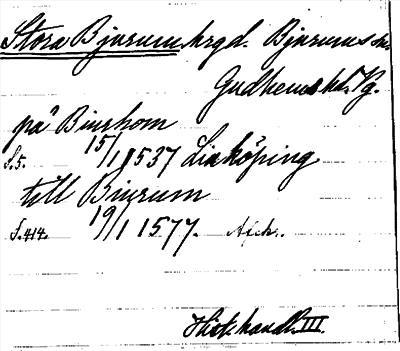 Stora Bjurum hrgd. Bjurums sn.
Gudhems hd. Vg.
på Biurhom
S.5. 15/1 1537 Linköping
till Biurum
S.414. 19/1 1577. Afsk.
Hist. handl. III.